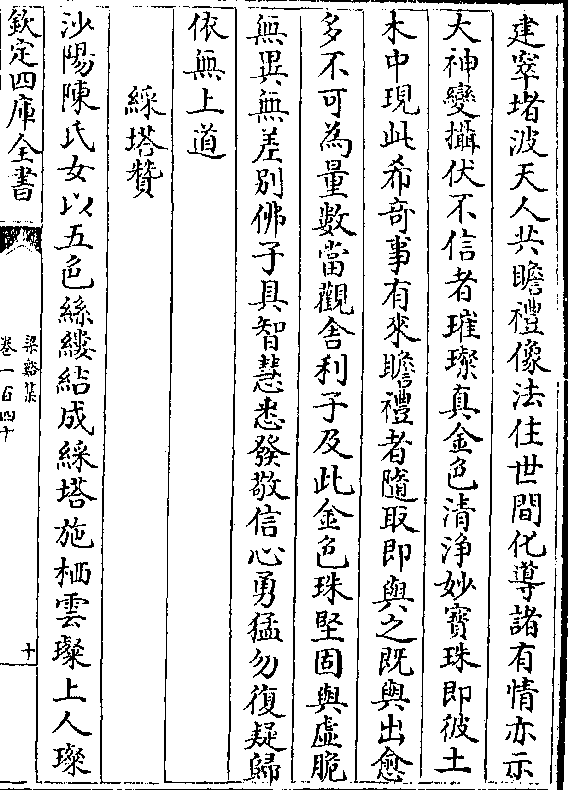 建窣堵波天人共瞻禮像法住世間化導諸有情亦示
大神變攝伏不信者璀璨真金色清淨妙寶珠即彼土
木中現此希奇事有來瞻禮者隨取即與之既與出愈
多不可為量數當觀舍利子及此金色珠堅固與虛脆
無異無差別佛子具智慧悉發敬信心勇猛勿復疑歸
依無上道
綵塔贊
沙陽陳氏女以五色絲縷結成綵塔施栖雲璨上人璨
欽定四庫全書
梁谿集
卷一百四十
十